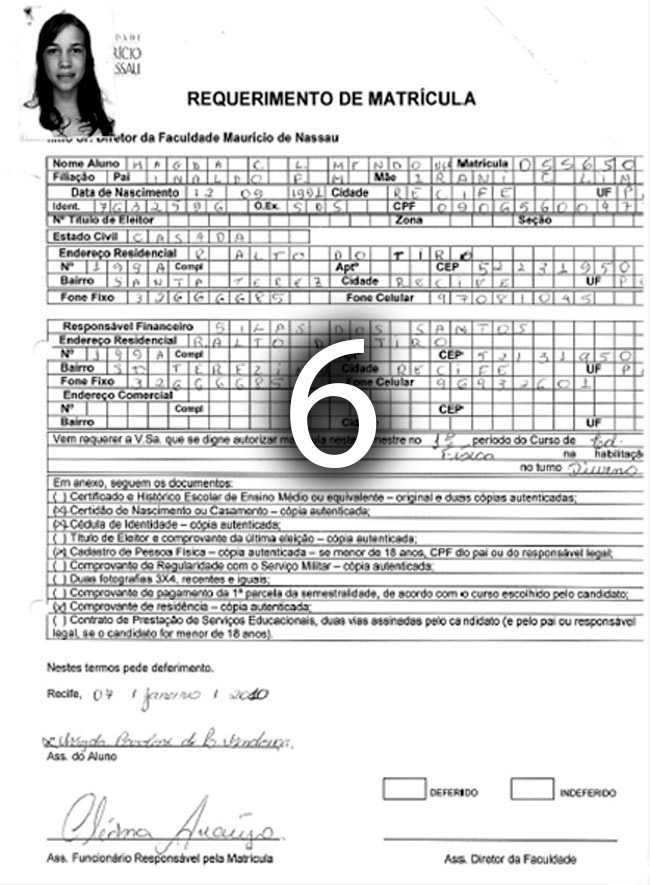 DADE
RÍCIO
SSAU
REQUERIMENTO DE MATRÍCULA
Diretor da Faculdade Maurício de Nassau
Nome Aluno MAGDA C. L. MENDO Matrícula 055650
Filiação Pai INALDO Mãe IRANI
Data de Nascimento 12 09 1991 Cidade RECIFE UF P
Ident. 7632596 O.Ex. SDS CPF
Nº Título de Eleitor Zona Seção
Estado Civil CASADA
Endereço Residencial R ALTO DO TIRO
Nº 199A Compl Aptº CEP 52231950
Bairro SANTA TEREZ Cidade RECIFE UF P
Fone Fixo 32666685 Fone Celular 97081045
Responsável Financeiro SILAS DOS SANTOS
Endereço Residencial R ALTO DO TIRO
Nº 199A Compl CEP 52131950
Bairro TEREZI Cidade RECIFE UF P
Fone Fixo 32666685 Fone Celular 96932601
Endereço Comercial
Nº Compl CEP
Bairro UF
6
Vem requerer a V.Sa. que se digne autorizar neste período do Curso de Ed.
Física na habilitaçã
no turno Diurno
Em anexo, seguem os documentos:
( ) Certificado e Histórico Escolar de Ensino Médio ou equivalente – original e duas cópias autenticadas;
(x) Certidão de Nascimento ou Casamento – cópia autenticada;
(x) Cédula de Identidade – cópia autenticada;
( ) Título de Eleitor e comprovante da última eleição – cópia autenticada;
(x) Cadastro de Pessoa Física – cópia autenticada – se menor de 18 anos, CPF do pai ou do responsável legal;
( ) Comprovante de Regularidade com o Serviço Militar – cópia autenticada;
( ) Duas fotografias 3X4, recentes e iguais;
( ) Comprovante de pagamento da 1ª parcela da semestralidade, de acordo com o curso escolhido pelo candidato;
(x) Comprovante de residência – cópia autenticada;
( ) Contrato de Prestação de Serviços Educacionais, duas vias assinadas pelo candidato (e pelo pai ou responsável
legal, se o candidato for menor de 18 anos).
Nestes termos pede deferimento.
Recife, 07 / janeiro / 2010
x Magda Caroline de L. Mendonça
Ass. do Aluno
DEFERIDO INDEFERIDO
Cléoma Araújo
Ass. Funcionário Responsável pela Matrícula Ass. Diretor da Faculdade